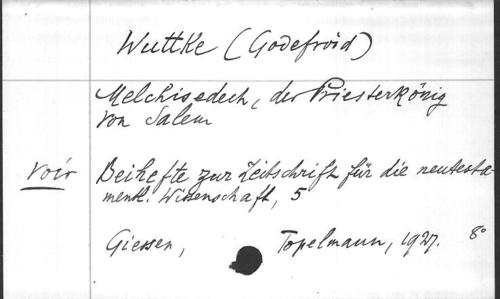 Wuttke (Godefroid)
Melchisedech, der Priesterkönig
von Salem
voir Beihefte zur Zeitschrift für die neutesta-
mentl. Wissenschaft, 5
Giessen, Töpelmann, 1927. 8°